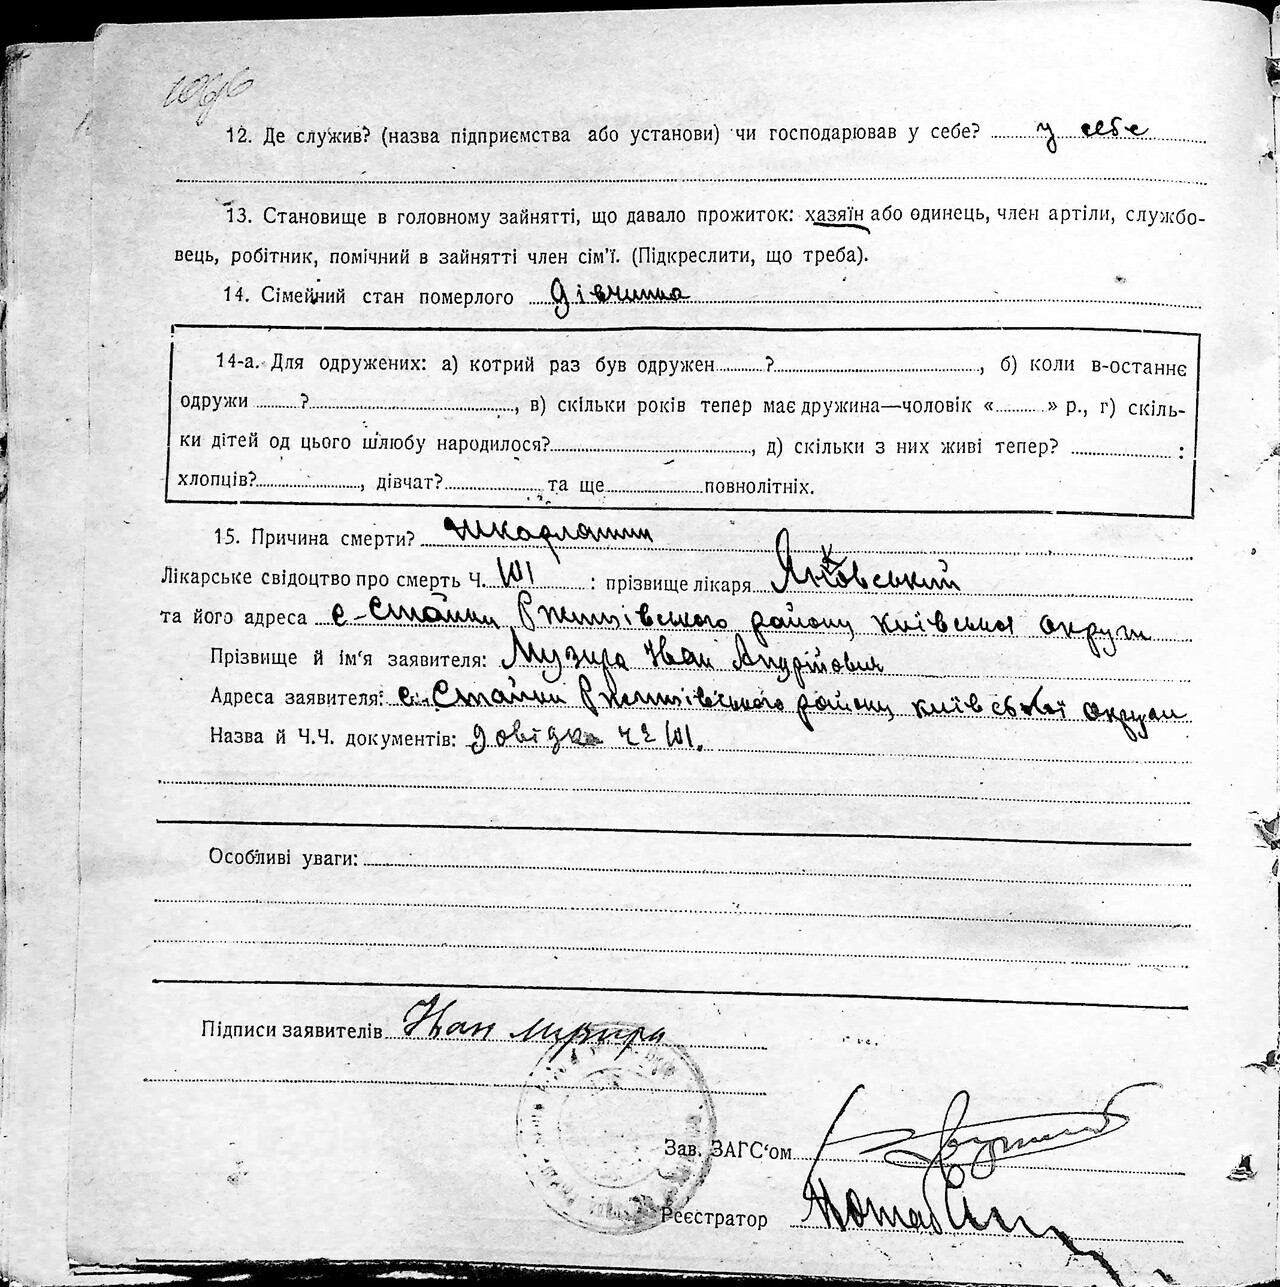 12. Де служив? (назва підприємства або установи) чи господарював у себе? у себе
13. Становище в головному зайнятті, що давало прожиток: хазяїн або одинець, член артіли, службо-
вець, робітник, помічний в зайнятті член сім'ї. (Підкреслити, що треба).
14. Сімейний стан померлого дівчина
14-а. Для одружених: а) котрий раз був одружен ?, б) коли в-останнє
одружи ?, в) скільки років тепер має дружина—чоловік « » р., г) скіль-
ки дітей од цього шлюбу народилося?, д) скільки з них живі тепер? :
хлопців?, дівчат? та ще повнолітніх.
15. Причина смерти? шкарлатин
Лікарське свідоцтво про смерть Ч. : прізвище лікаря Янковський
та його адреса с-Стайки Ржищівського району київської округи
Прізвище й ім'я заявителя: Музира Іван Андрійович
Адреса заявителя: с. Стайки Ржищівського району київської округи
Назва й Ч.Ч. документів: довідка
Особливі уваги:
Підписи заявителів Иван Музира
Зав. ЗАГС'ом
Реєстратор